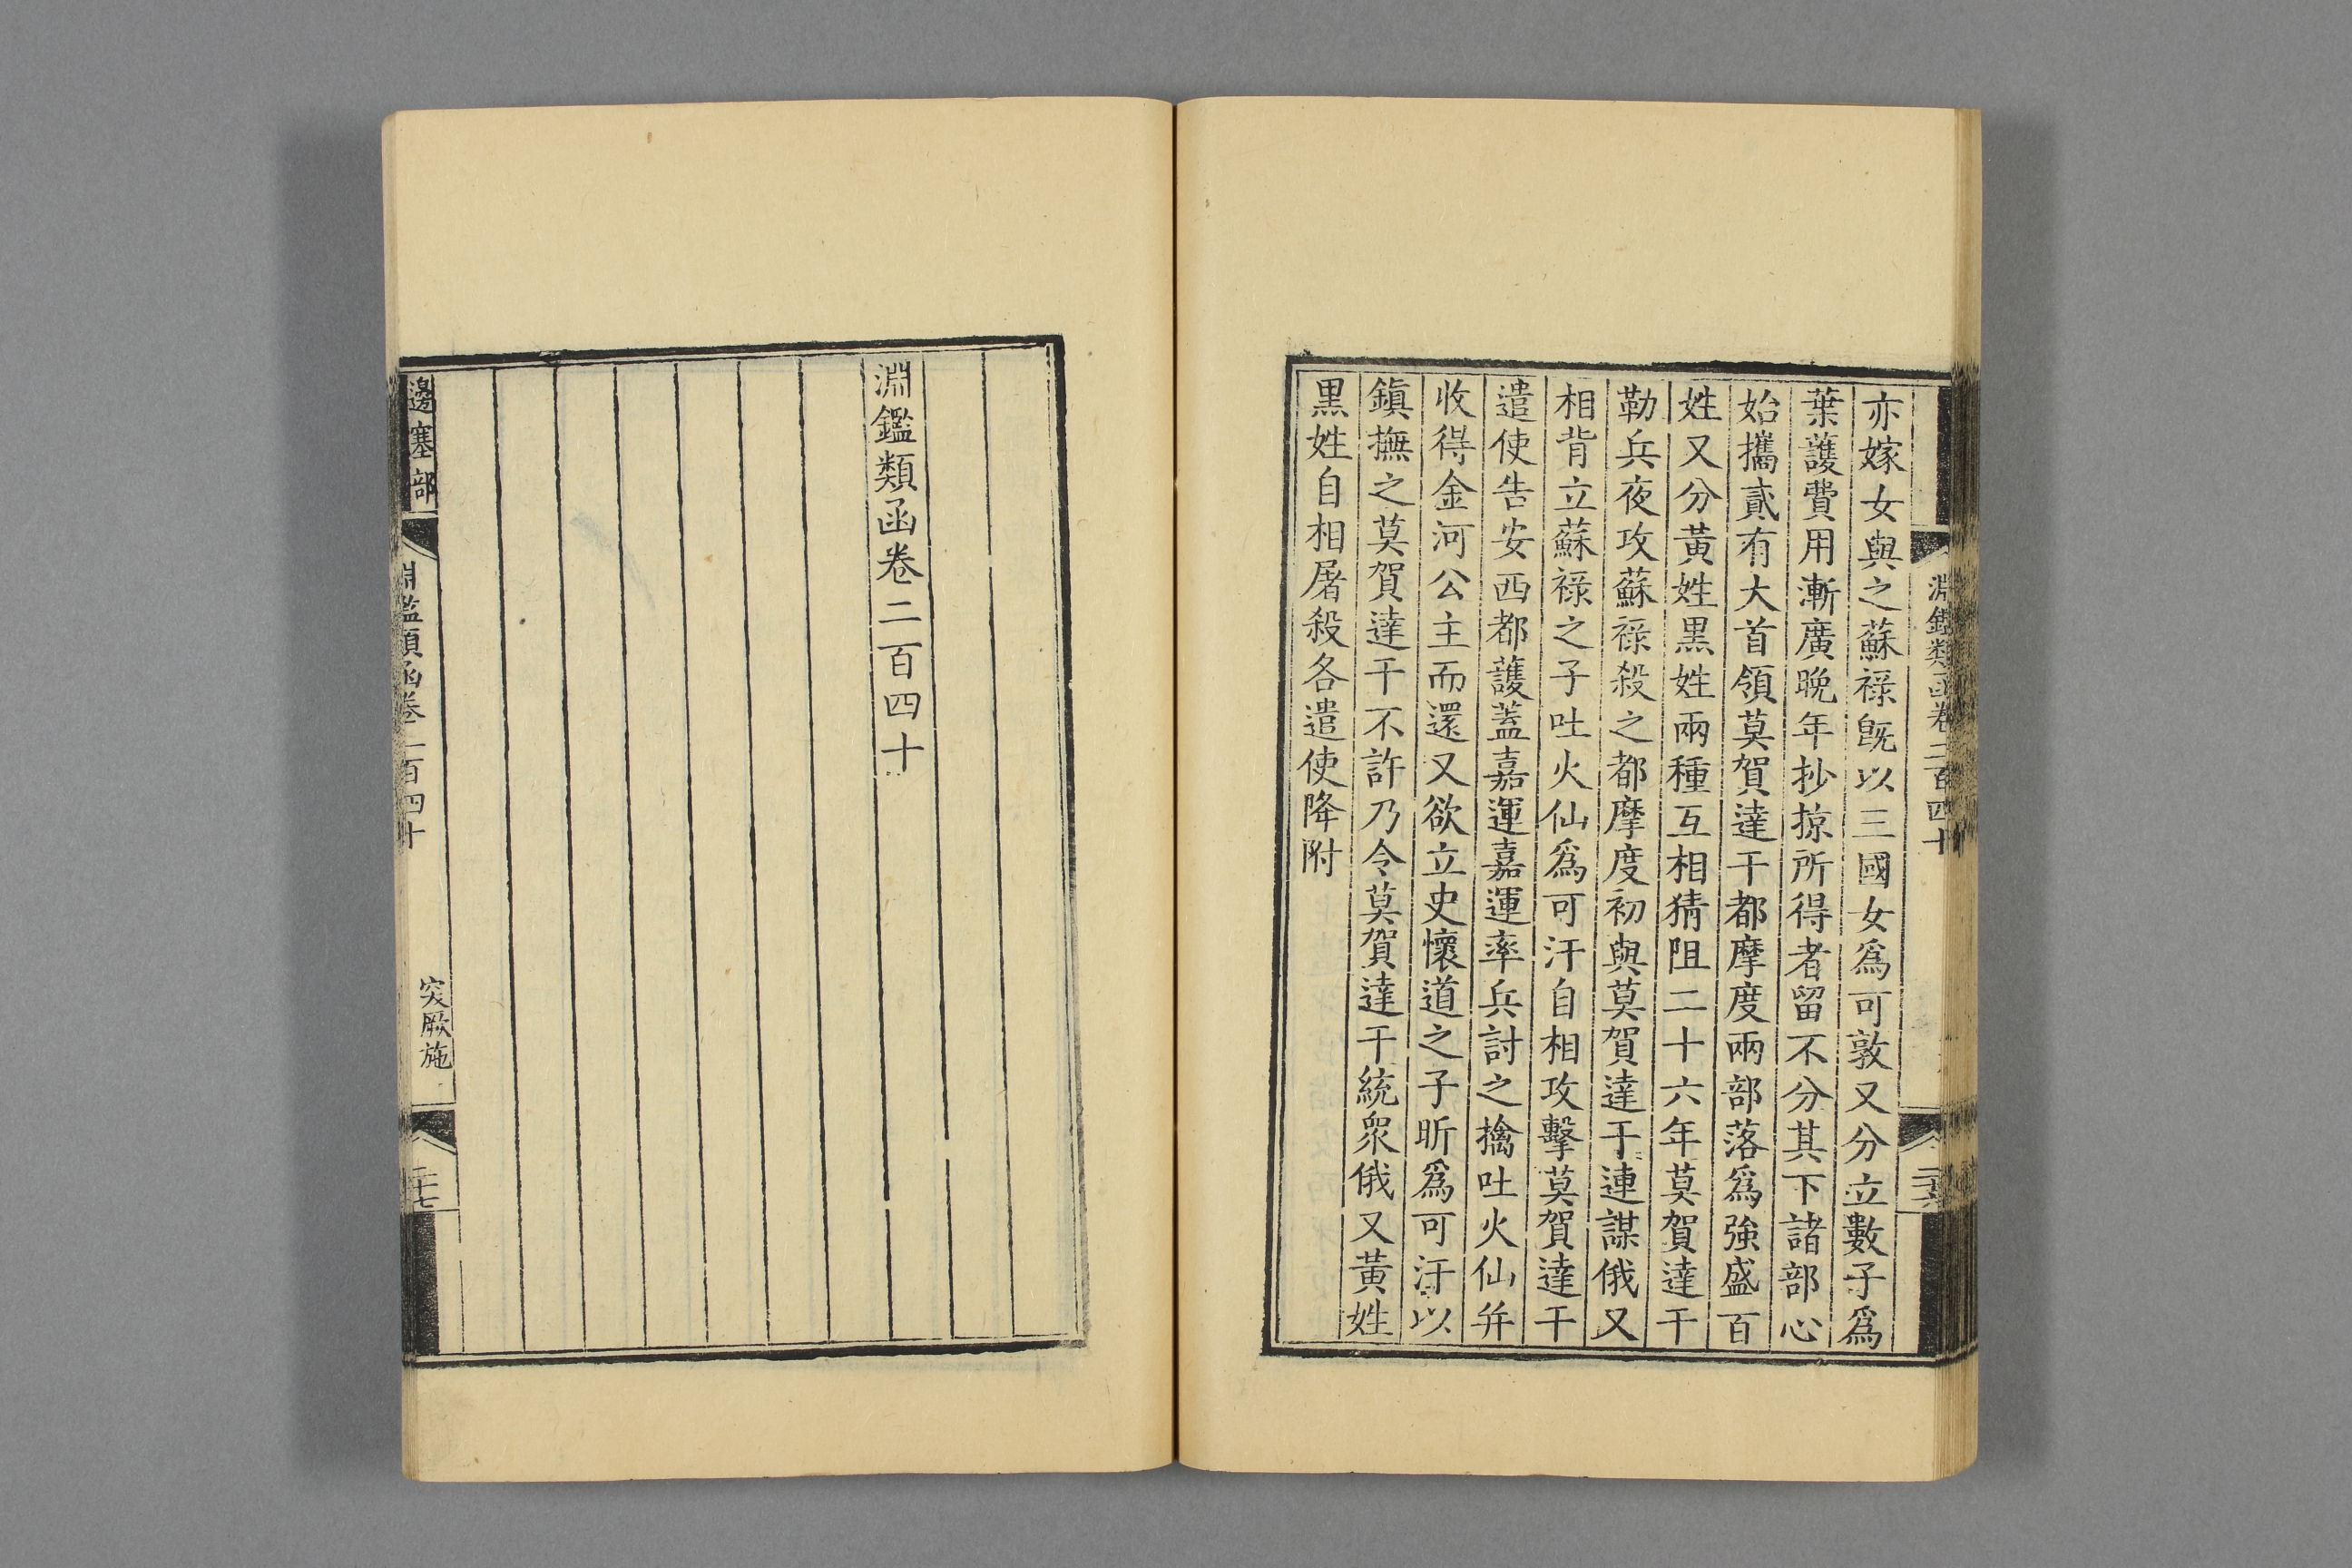 淵鑑類函卷二百四十
亦嫁女與之蘇祿旣以三國女爲可敦又分立數子爲
葉護費用漸廣晚年抄掠所得者留不分其下諸部心
始攜貳有大首領莫賀達干都摩度兩部落爲強盛百
姓又分黃姓黑姓兩種互相猜阻二十六年莫賀達干
勒兵夜攻蘇祿殺之都摩度初與莫賀達干連謀俄又
相背立蘇祿之子吐火仙爲可汗自相攻擊莫賀達干
遣使告安西都護蓋嘉運嘉運率兵討之擒吐火仙幷
收得金河公主而還又欲立史懷道之子昕爲可汗以
鎭撫之莫賀達干不許乃令莫賀達干統衆俄又黃姓
黑姓自相屠殺各遣使降附
淵鑑類函卷二百四十
邊塞部
淵鑑類函卷二百四十
突厥施
二十七